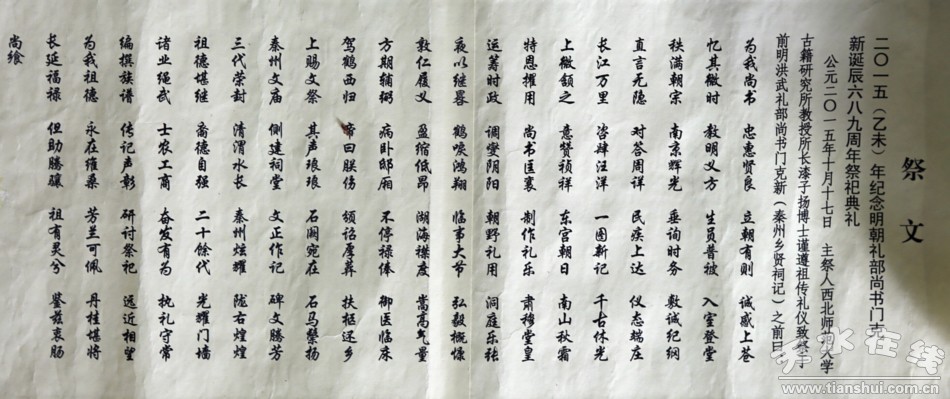 祭 文
二〇一五（乙未）年纪念明朝礼部尚书门克
新诞辰六八九周年祭祀典礼
公元二〇一五年十月十七日 主祭人西北师范大学
古籍研究所教授所长漆子扬博士谨遵祖传礼仪致祭于
前明洪武礼部尚书门克新（秦州乡贤祠记）之前曰
为我尚书 忠惠贤良 立朝有则 诚感上苍
忆其微时 教明义方 生员普被 入室登堂
秩满朝宗 南京辉光 垂询时务 敷诚纪纲
直言无隐 对答周详 民疾上达 仪态端庄
长江万里 咨肆汪洋 一图新记 千古休光
上徽颔之 意赞祯祥 东宫朝日 南山秋霜
特恩擢用 尚书匡襄 制作礼乐 肃穆堂皇
运筹时政 调燮阴阳 朝野礼用 洞庭乐张
夜以继晷 鹤唳鸿翔 临事大节 弘毅慨慷
敦仁履义 盈缩低昂 湖海襟度 嵩高气量
方期辅弼 病卧邸厢 不停禄俸 御医临床
驾鹤西归 帝曰朕伤 颁诏厚葬 扶柩还乡
上赐文祭 其声琅琅 石阙宛在 石马鬃扬
秦州文庙 侧建祠堂 文正作记 碑文腾芳
三代荣封 清渭水长 秦州炫耀 陇右煌煌
祖德堪继 裔德自强 二十余代 光耀门墙
诸业绳武 士农工商 奋发有为 执礼守常
编撰族谱 传记声彰 研讨祭祀 远近相望
为我祖德 永在维桑 芳兰可佩 丹桂堪将
长延福禄 但助腾骧 祖有灵兮 鉴兹衷肠
尚飨
天水在线
www.tianshui.com.cn